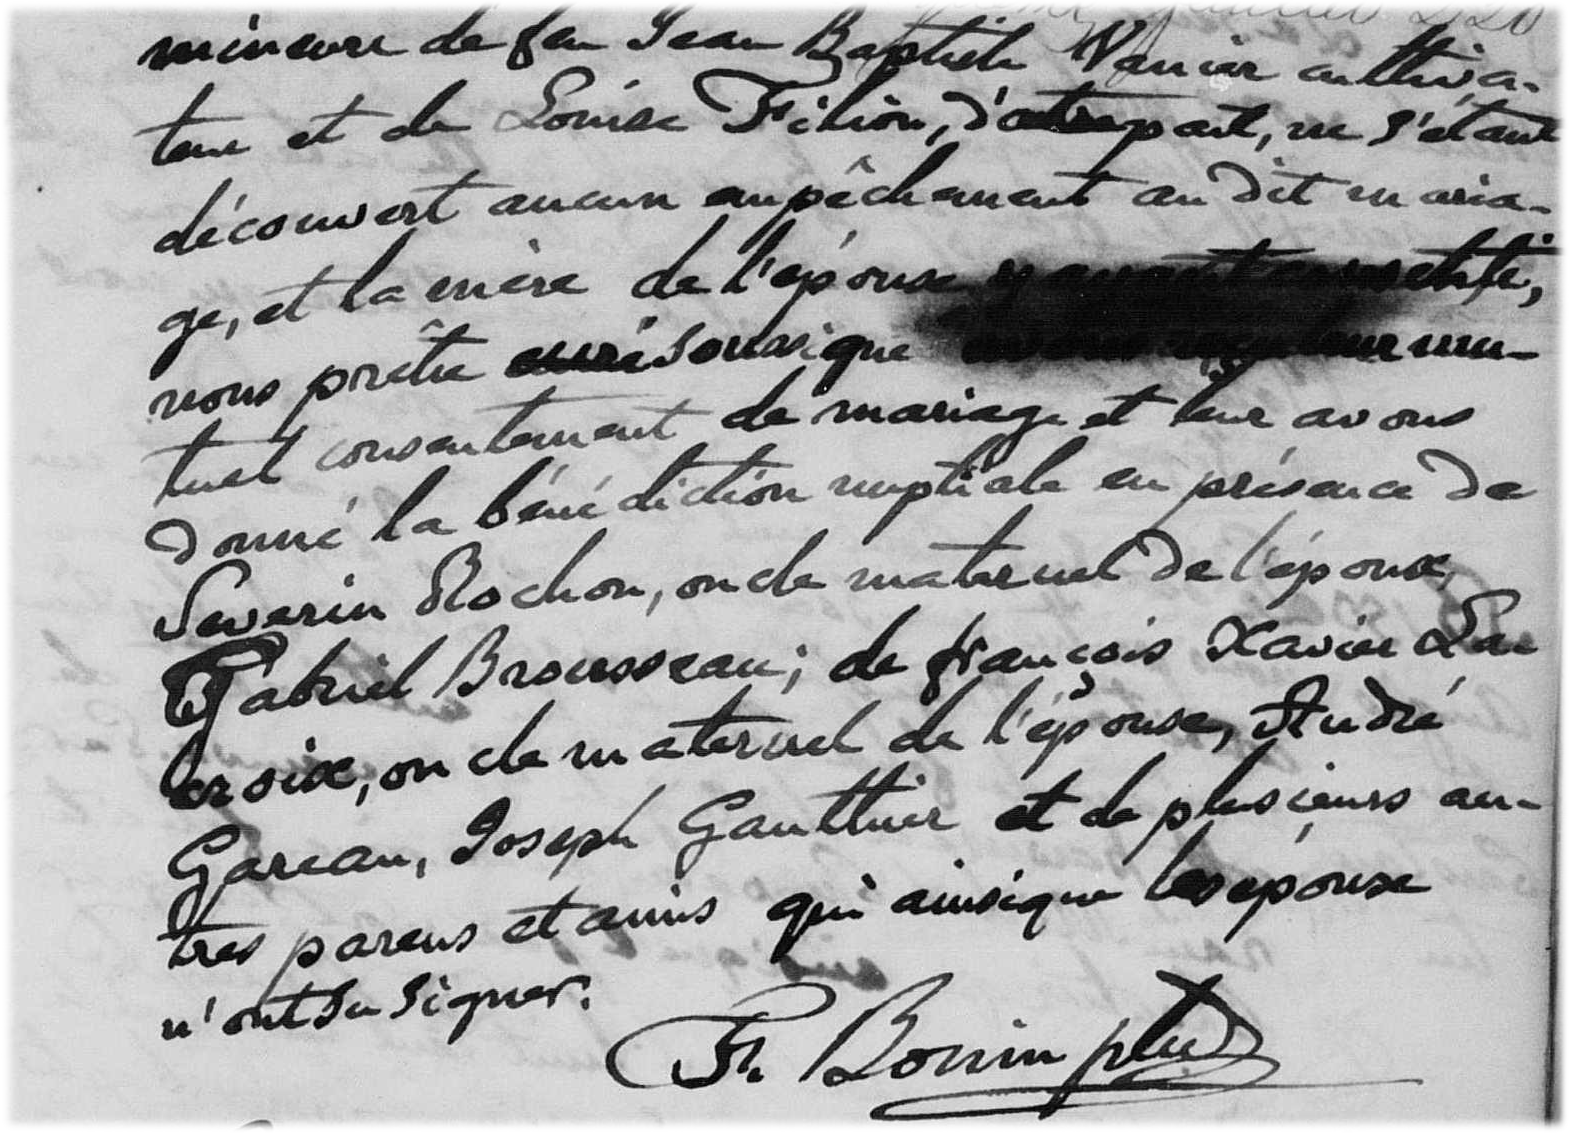 mineure de feu Jean Baptiste Vanier cultiva-
teur et de Louise Filion, d'autre part, ne s'étant
découvert aucun empêchement au dit maria-
ge, et la mère de l'épouse y ayant consenti,
nous prêtre curé soussigné avons reçu leur mu-
tuel consentement de mariage et leur avons
donné la bénédiction nuptiale en présence de
Severin Rochon, oncle maternel de l'époux,
Gabriel Brousseau; de françois Xavier La
croix, oncle maternel de l'épouse, André
Gareau, Joseph Gauthier et de plusieurs au-
tres parens et amis qui ainsique les époux
n'ont su signer.
F. Bonin ptre